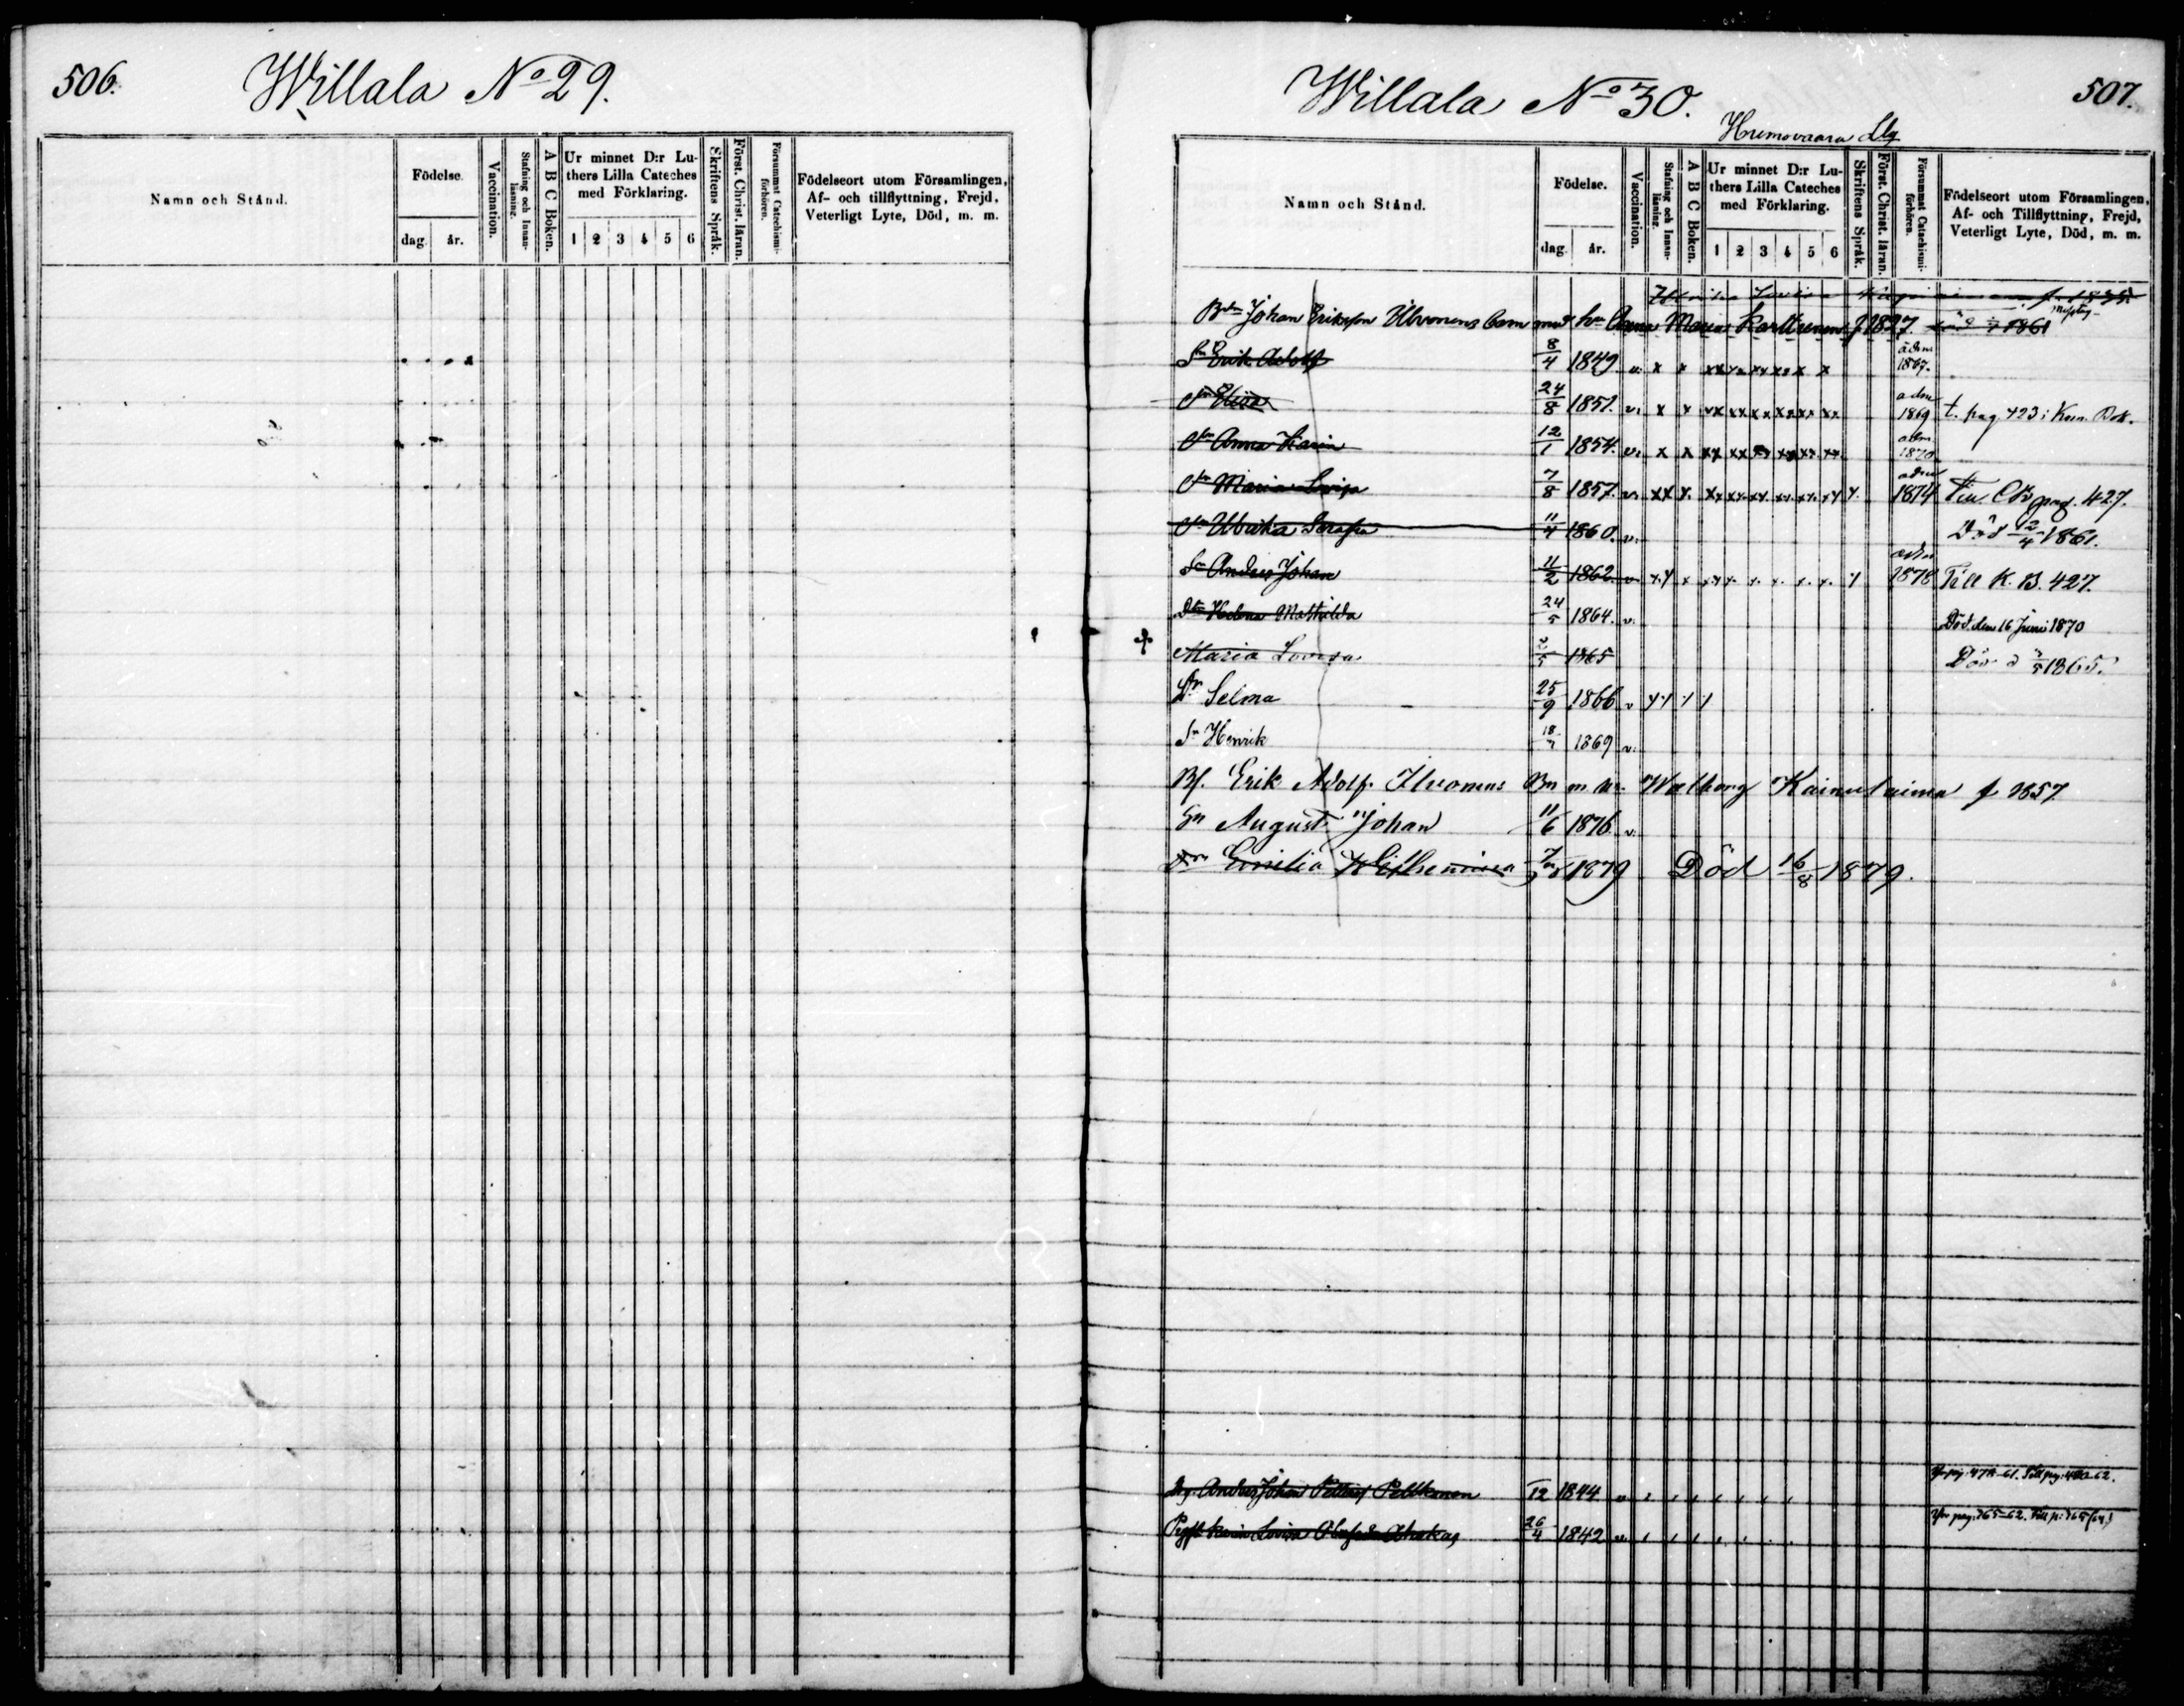 506.
Willala No 29.
Namn och Stånd.
Födelse.
dag. år.
Vaccination.
Stafning och Innanläsning.
A B C Boken.
Ur minnet D:r Luthers Lilla Cateches med Förklaring.
1 2 3 4 5 6
Skriftens Språk.
Först. Christ. läran.
Försummat Catechismiförhören.
Födelseort utom Församlingen,
Af- och tillflyttning, Frejd,
Veterligt Lyte, Död, m. m.
507.
Willala No 30.
Namn och Stånd.
Födelse.
dag. år.
Vaccination.
Stafning och Innanläsning.
A B C Boken.
Ur minnet D:r Luthers Lilla Cateches med Förklaring.
1 2 3 4 5 6
Skriftens Språk.
Först. Christ. läran.
Försummat Catechismiförhören.
Födelseort utom Församlingen,
Af- och Tillflyttning, Frejd,
Veterligt Lyte, Död, m. m.
Johan Eriksson Ilvonens barn med hu Anna Maria Karttunen f 1827. 1861
Sn Erik Adolf 8/4 1849 v. x x adm 1867.
Elisa 24/8 1851. v. x x adm 1869 t. pag. 423 i
Anna Karin 12/1 1854. v. x x adm 1870
Maria Lovisa 7/8 1857. v. adm 1874 pag. 427.
Ulrika Serafia 11/4 1860. v. Död 12/4 1861.
Sn Anders Johan 11/2 1862 v. adm 1878 Till K. B. 427.
Dtr Helena Mathilda 24/5 1864. v. Död den 16 Juni 1870
Maria Lovisa 2/5 1865 Död d 3/5 1865.
Dr Selma 25/9 1866 v
Sn Henrik 18/7 1869 v.
Bf. Erik Adolf Ilvonens Bn m hu. Walborg Kainulainen f 1857
Sn August Johan 11/6 1876 v.
Dr Emilia Wilhelmina 1879 Död 16/8 1879.
Anders Johan Petters Peltonen /12 1844 v
Karin Lovisa 26/4 1842 v.